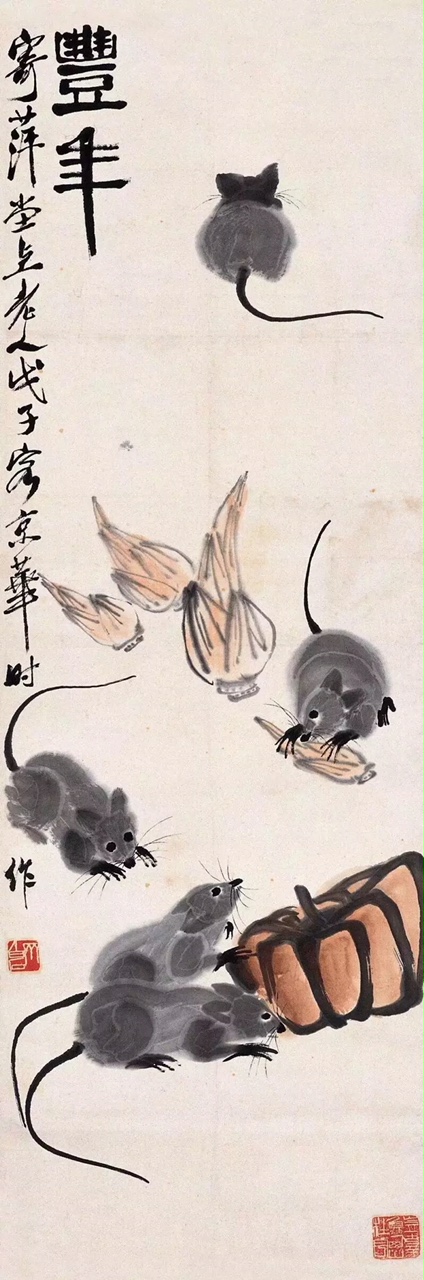 豐年
寄萍堂上老人戊子客京華時作